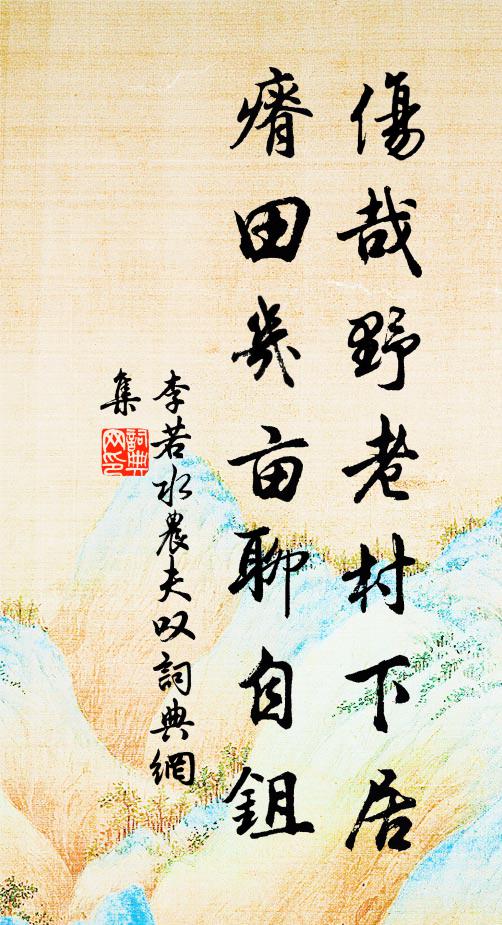 傷哉野老村下居
瘠田幾亩聊自鉏
李若水農夫叹詞典網
集
詞典
网印